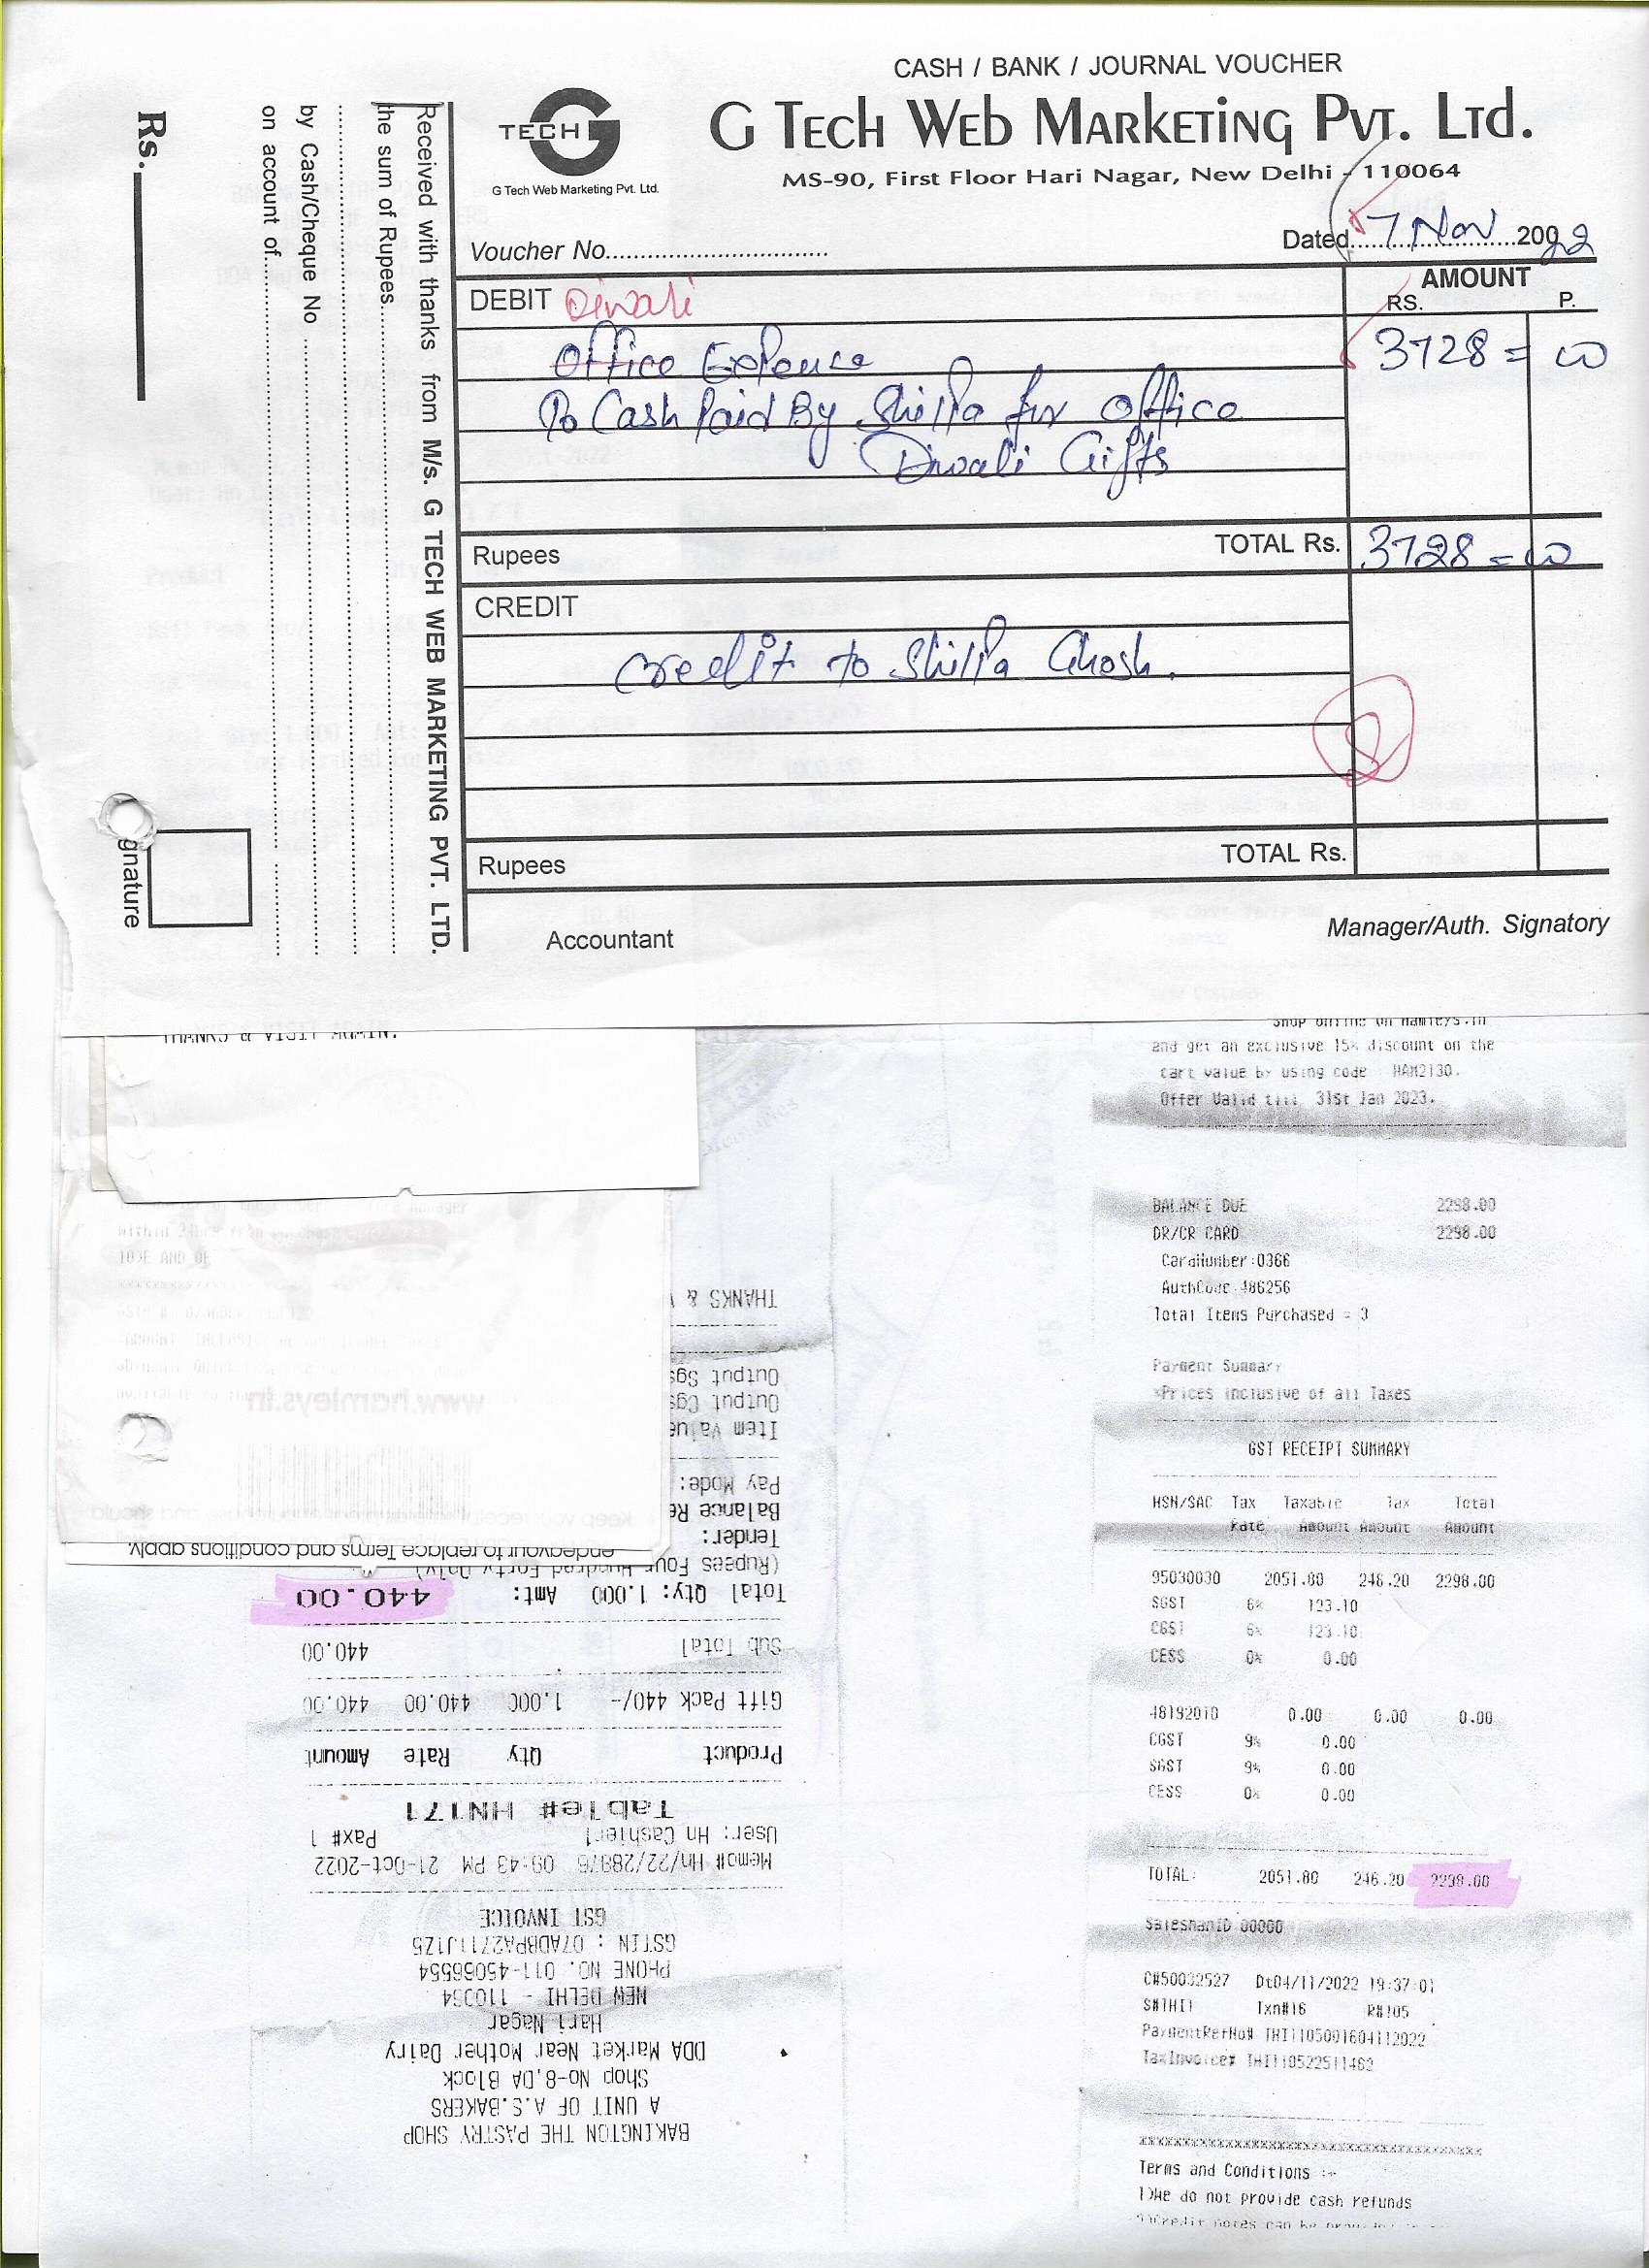 CASH / BANK / JOURNAL VOUCHER
TECH G
G Tech Web Marketing Pvt. Ltd.
G TECH WEB MARKETING PVT. LTD.
MS-90, First Floor Hari Nagar, New Delhi - 110064
Voucher No.
Dated 7 Nov 2022
DEBIT Diwali
AMOUNT
RS. P.
Office Expense 3728 = 00
To Cash Paid By Shilpa for office
Diwali Gifts
Rupees TOTAL Rs. 3728 = 00
CREDIT
credit to Shilpa Ghosh.
Rupees TOTAL Rs.
Accountant Manager/Auth. Signatory
Received with thanks from M/s. G TECH WEB MARKETING PVT. LTD.
the sum of Rupees
by Cash/Cheque No
on account of
Rs.
gnature
THANKS & VISIT AGAIN.
www.hamleys.in
endeavour to replace Terms and conditions apply
BAKINGTON THE PASTRY SHOP
A UNIT OF A.S.BAKERS
Shop No-8,DA Block
DDA Market Near Mother Dairy
Hari Nagar
NEW DELHI - 110064
PHONE NO. 011-45056554
GSTIN : 07ADBPA2711J1Z5
GST INVOICE
Memo# Hn/22/28976 09:43 PM 21-Oct-2022
User: Hn Cashier1 Pax# 1
Table# HN171
Product Qty Rate Amount
Gift Pack 440/- 1.000 440.00 440.00
Sub Total 440.00
Total Qty: 1.000 Amt: 440.00
(Rupees Four Hundred Forty Only)
Tender:
Balance Re
Pay Mode:
Item Value
Output Cgs
Output Sgs
THANKS &
Shop online on Hamleys.in
and get an exclusive 15% discount on the
cart value by using code HAM2130.
Offer Valid till 31st Jan 2023.
BALANCE DUE 2298.00
DR/CR CARD 2298.00
CardNumber:0366
AuthCode:486256
Total Items Purchased = 3
Payment Summary
*Prices inclusive of all Taxes
GST RECEIPT SUMMARY
HSN/SAC Tax Taxable Tax Total
Rate Amount Amount Amount
95030030 2051.80 246.20 2298.00
SGST 6% 123.10
CGST 6% 123.10
CESS 0% 0.00
48192010 0.00 0.00 0.00
CGST 9% 0.00
SGST 9% 0.00
CESS 0% 0.00
TOTAL: 2051.80 246.20 2298.00
SalesmanID 00000
C#50032527 Dt04/11/2022 19:37:01
S#THI1 Txn#16 R#105
PaymentRefNo# THI1105001604112022
TaxInvoice# THI110522511462
Terms and Conditions :-
1)We do not provide cash refunds